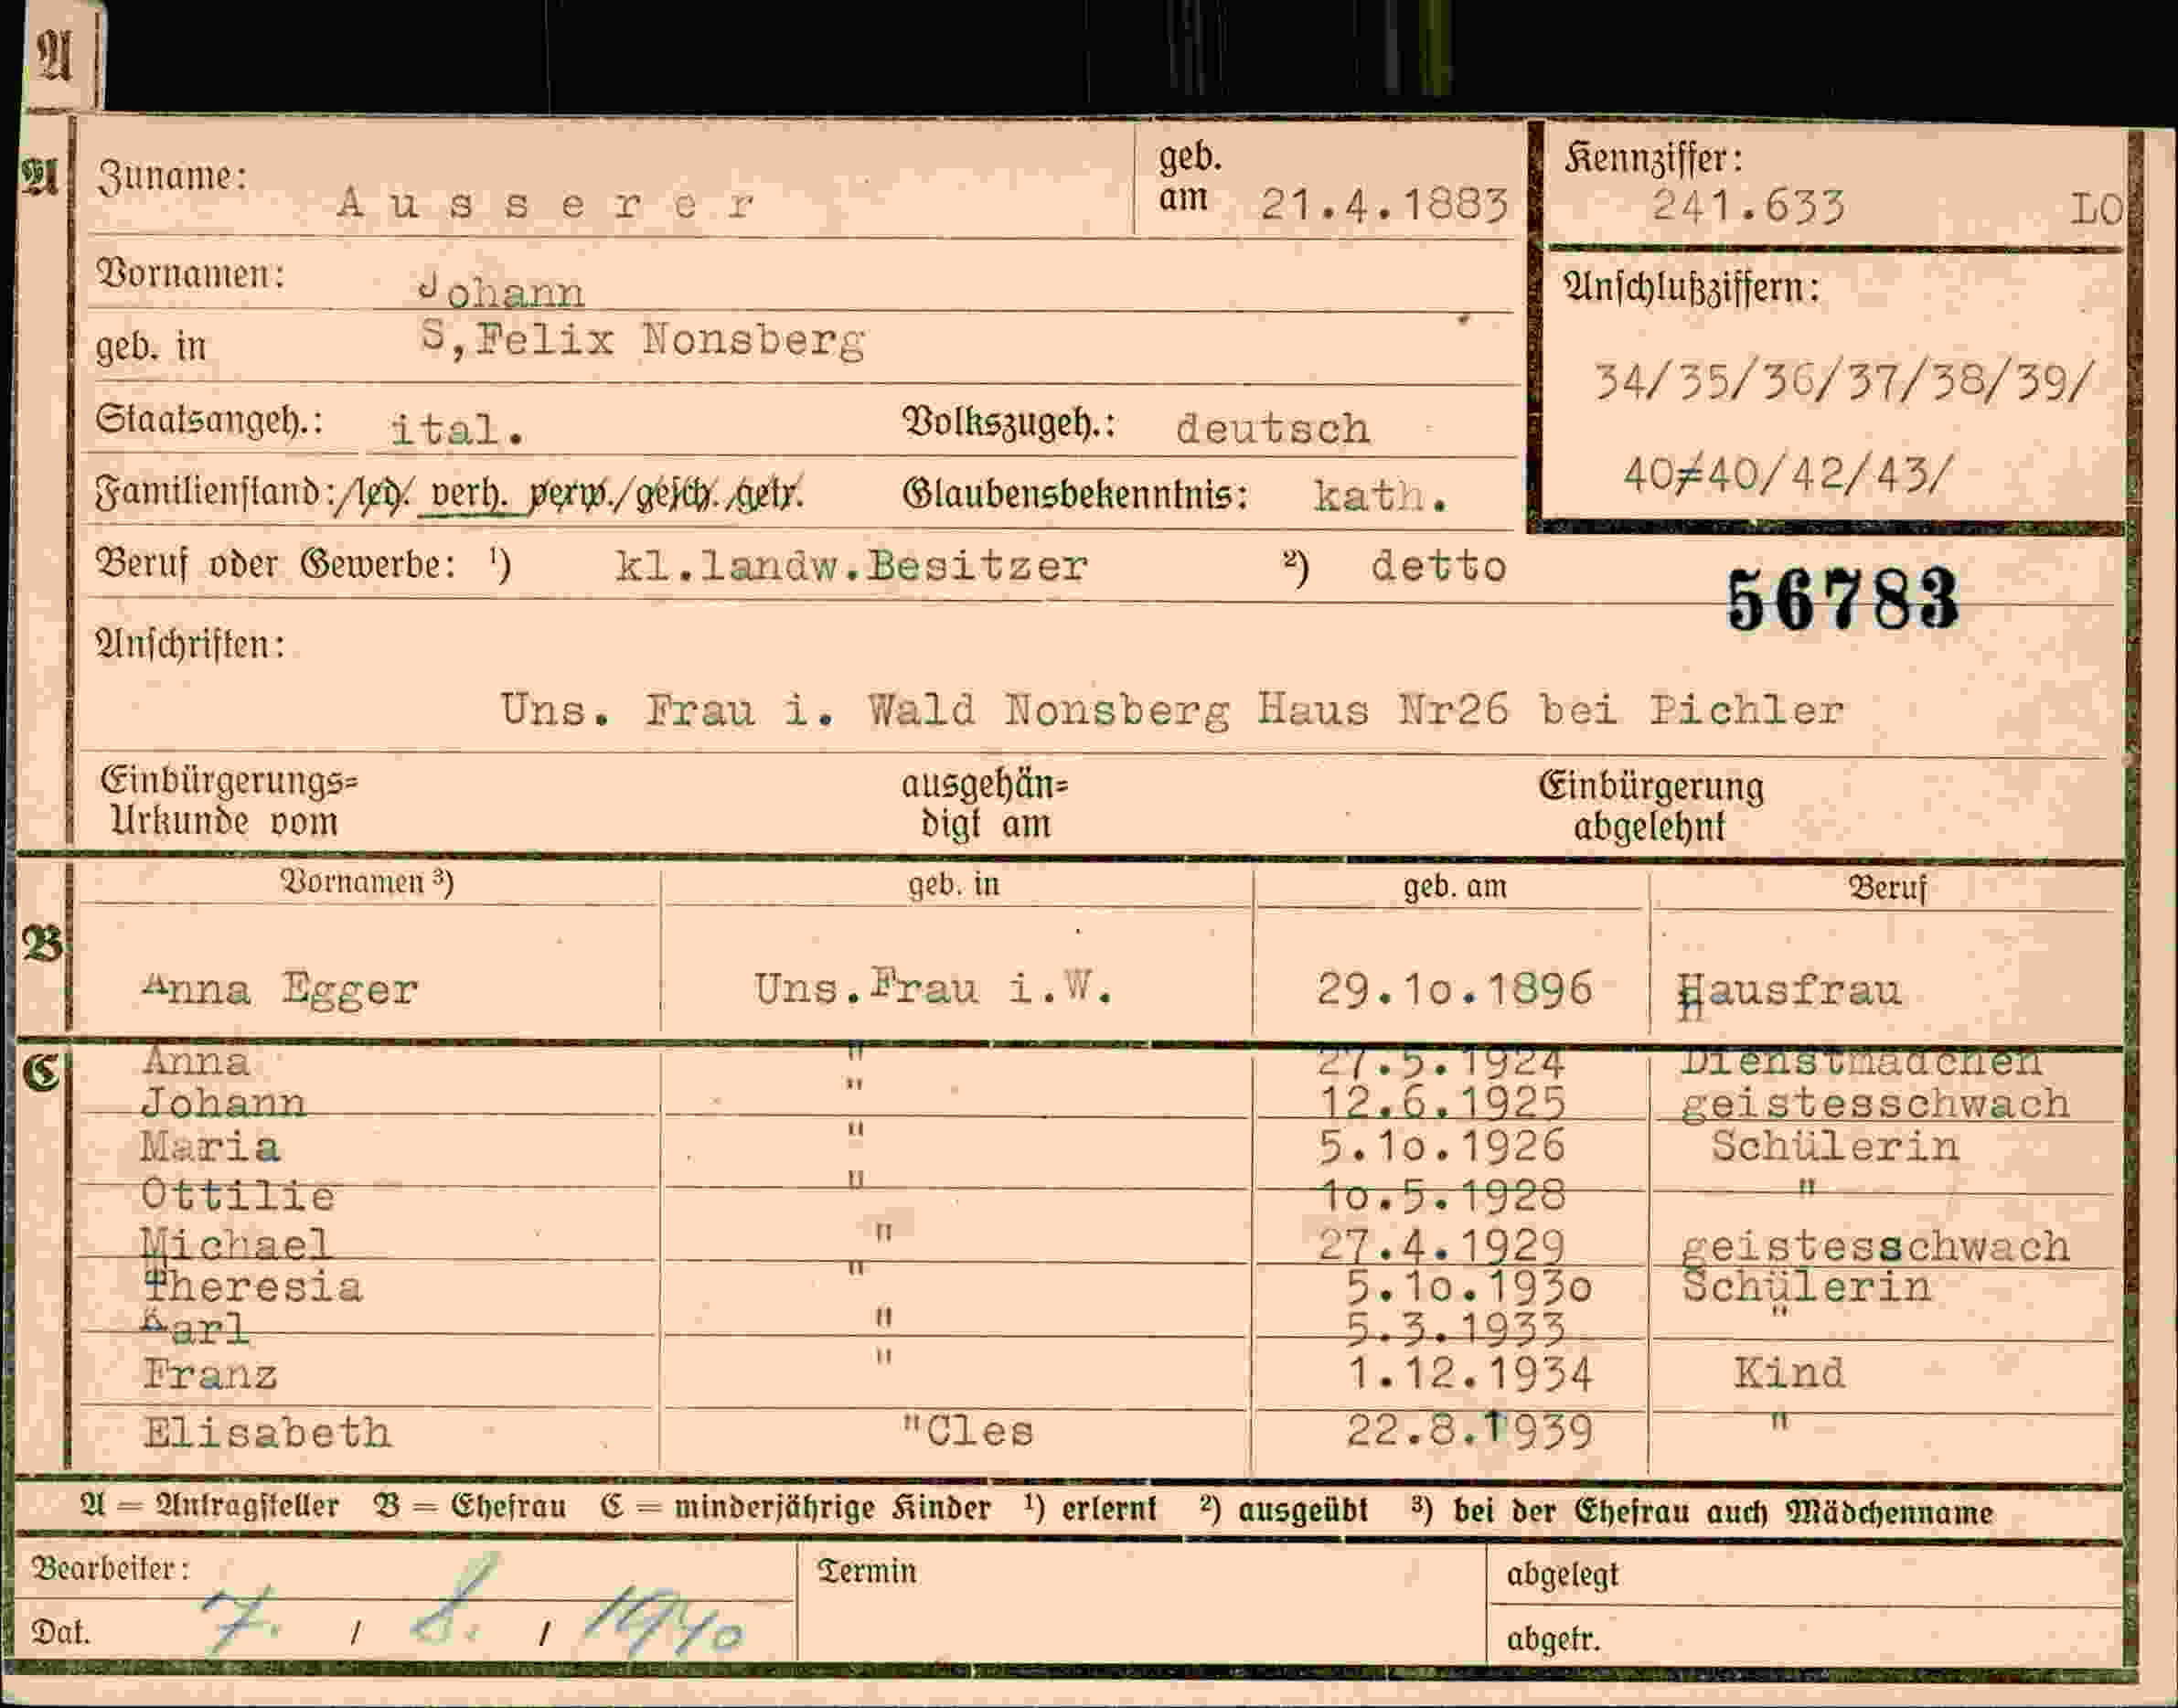 A
A
Zuname: Ausserer geb. am 21.4.1883
Kennziffer: 241.633 LO
Vornamen: Johann
geb. in S,Felix Nonsberg
Anschlußziffern:
34/35/36/37/38/39/
40≠40/42/43/
Staatsangeh.: ital. Volkszugeh.: deutsch
Familienstand:/led/. verh. verw./gesch./getr. Glaubensbekenntnis: kath.
Beruf oder Gewerbe: ¹) kl.landw.Besitzer ²) detto
56783
Anschriften:
Uns. Frau i. Wald Nonsberg Haus Nr26 bei Pichler
Einbürgerungs= ausgehän= Einbürgerung
Urkunde vom digt am abgelehnt
Vornamen ³) geb. in geb. am Beruf
B
Anna Egger Uns.Frau i.W. 29.10.1896 Hausfrau
C
Anna " 27.5.1924 Dienstmädchen
Johann " 12.6.1925 geistesschwach
Maria " 5.10.1926 Schülerin
Ottilie " 10.5.1928 "
Michael " 27.4.1929 geistesschwach
Theresia " 5.10.1930 Schülerin
Karl " 5.3.1933 "
Franz " 1.12.1934 Kind
Elisabeth "Cles 22.8.1939 "
A = Antragsteller B = Ehefrau C = minderjährige Kinder ¹) erlernt ²) ausgeübt ³) bei der Ehefrau auch Mädchenname
Bearbeiter: Termin abgelegt
Dat. 7. / 8. / 1940 abgetr.